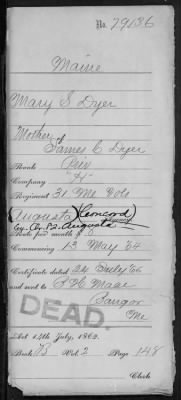 No. 79136
Maine
Mary S Dyer
Mother of
James C Dyer
Rank Priv
Company "H"
Regiment 31 Me Vols
(Augusta) (Concord Agency)
Augusta
Rate per month $8
Commencing 13 May '64
Certificate dated 24 July '66
and sent to
Bangor
Me
DEAD.
Act 14th July, 1862.
Book B Vol. 2 Page 148
Clerk